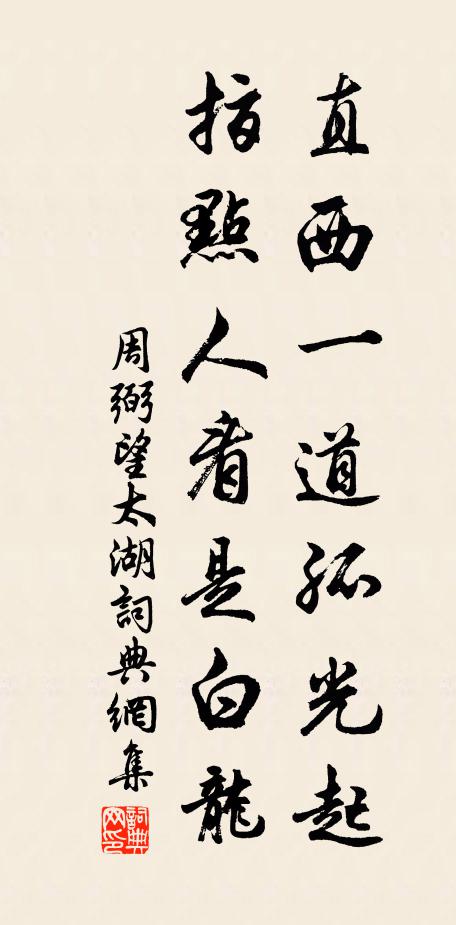 直西一道孤光起
指點人看是白龍
周弼望太湖詞典網集
詞典
网印